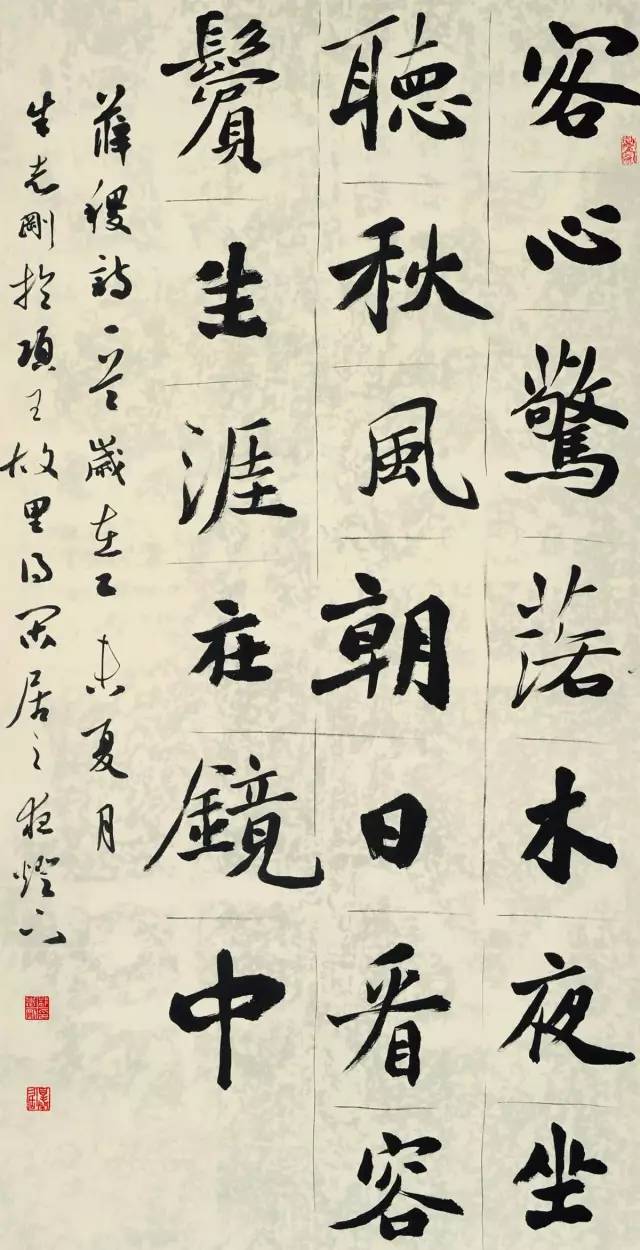 客心驚落木夜坐
聽秋風朝日看容
鬢生涯在鏡中
薛稷詩一首歲在乙未夏月
志剛於項王故里得閑居之夜燈下